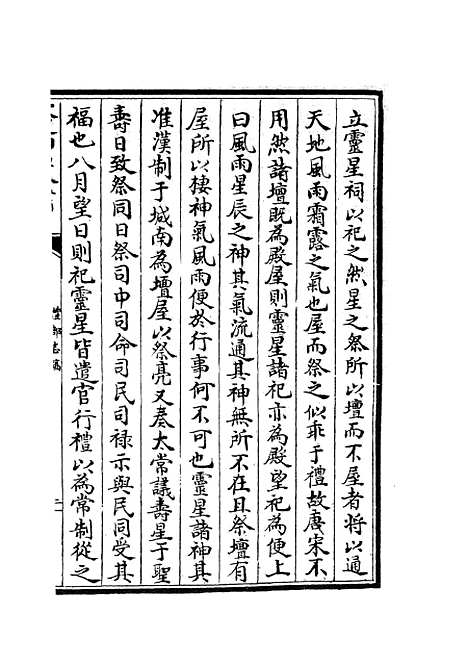 立靈星祠以祀之然星之祭所以壇而不屋者將以通
天地風雨霜露之氣也屋而祭之似乖于禮故唐宋不
用然諸壇既為殿屋則靈星諸祀亦為殿望祀為便上
曰風雨星辰之神其氣流通其神無所不在且祭壇有
屋所以棲神氣風雨便於行事何不可也靈星諸神其
准漢制于城南為壇屋以祭亮又奏太常議壽星于聖
壽日致祭同日祭司中司命司民司祿示與民同受其
福也八月望日則祀靈星皆遣官行禮以為常制從之
禮部志稿